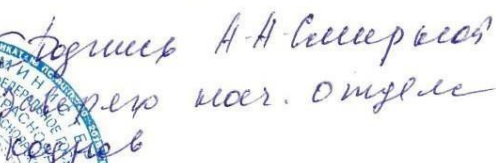 Подпись А.А. Смирнова
заверяю нач. отдела
кадров